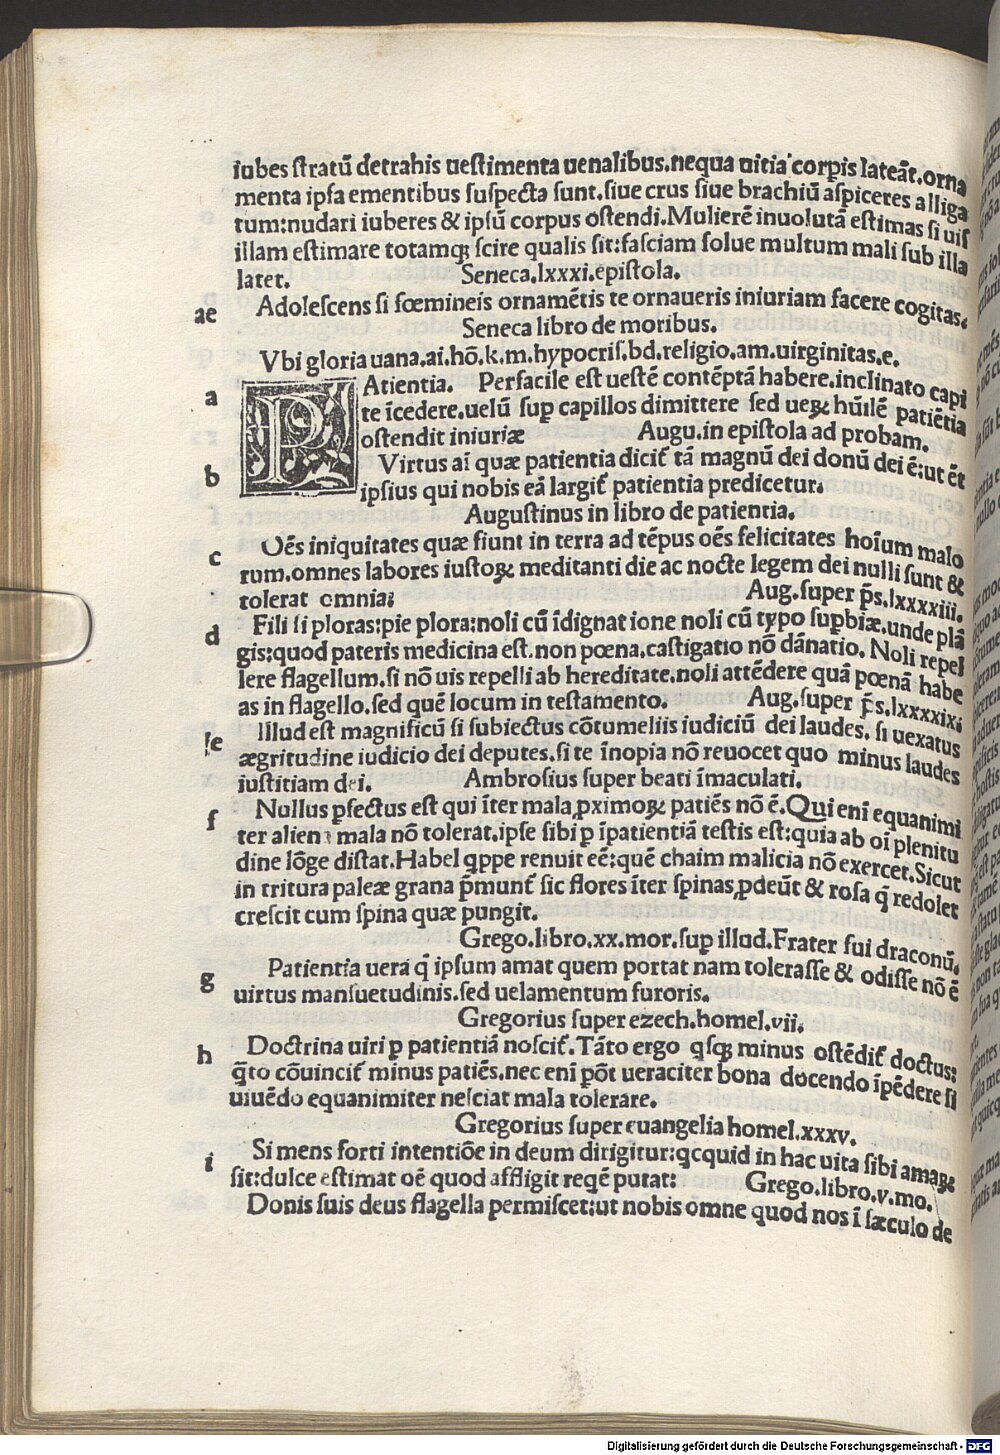 iubes stratū detrahis uestimenta uenalibus.nequa uitia corpis lateāt.orna
menta ipsa ementibus suspecta sunt.siue crus siue brachiū aspiceres alliga
tum:nudari iuberes & ipsū corpus ostendi.Mulierē inuolutā estimas si uis
illam estimare totamqꝫ scire qualis sit:fasciam solue multum mali sub illa
latet. Seneca.lxxxi.epistola.
ae Adolescens si fœmineis ornamētis te ornaueris iniuriam facere cogitas.
Seneca libro de moribus.
Vbi gloria uana.ai.hō.k.m.hypocris.bd.religio.am.uirginitas.e.
a PAtientia. Perfacile est uestē contēptā habere.inclinato capi
te īcedere.uelū sup capillos dimittere sed ueꝝ hūilē patiētia
ostendit iniuriæ Augu.in epistola ad probam.
b Virtus aī quæ patientia dicit̄ tā magnū dei donū dei ē:ut ēt
ipsius qui nobis eā largit̄ patientia predicetur:
Augustinus in libro de patientia.
c Oēs iniquitates quæ fiunt in terra ad tēpus oēs felicitates hoīum malo
rum.omnes labores iustoꝝ meditanti die ac nocte legem dei nulli sunt &
tolerat omnia: Aug.super p̄s.lxxxxiii.
d Fili si ploras:pie plora:noli cū īdignat ione noli cū typo supbiæ.unde plā
gis:quod pateris medicina est.non pœna.castigatio nō dānatio. Noli repel
lere flagellum.si nō uis repelli ab hereditate.noli attēdere quā pœnā habe
as in flagello.sed quē locum in testamento. Aug.super p̄s.lxxxxix:
e Illud est magnificū si subiectus cōtumeliis iudiciū dei laudes. si uexatus
ægritudine iudicio dei deputes.si te īnopia nō reuocet quo minus laudes
iustitiam dei. Ambrosius super beati īmaculati.
f Nullus ꝓfectus est qui īter mala ꝓximoꝝ patiēs nō ē.Qui enī equanimi
ter aliena mala nō tolerat.ipse sibi ꝑ īpatientiā testis est:quia ab oī plenitu
dine lōge distat.Habel qppe renuit eē:quē chaim malicia nō exercet.Sicut
in tritura paleæ grana p̄munt̄ sic flores īter spinas ꝓdeūt & rosa q̄ redolet
crescit cum spina quæ pungit.
Grego.libro.xx.mor.sup illud.Frater fui draconū.
g Patientia uera q̄ ipsum amat quem portat nam tolerasse & odisse nō ē
uirtus mansuetudinis.sed uelamentum furoris.
Gregorius super ezech.homel.vii.
h Doctrina uiri ꝑ patientiā noscit̄.Tāto ergo qsqꝫ minus ostēdit̄ doctus:
q̄to cōuincit̄ minus patiēs.nec enī pōt ueraciter bona docendo īpēdere si
uiuēdo equanimiter nesciat mala tolerare.
Gregorius super euangelia homel.xxxv.
i Si mens forti intentiōe in deum dirigitur:qcquid in hac uita sibi amaꝝ
sit:dulce estimat oē quod affligit reqē putat: Grego.libro.v.mo.
Donis suis deus flagella permiscet:ut nobis omne quod nos ī sæculo de
Digitalisierung gefördert durch die Deutsche Forschungsgemeinschaft - DFG